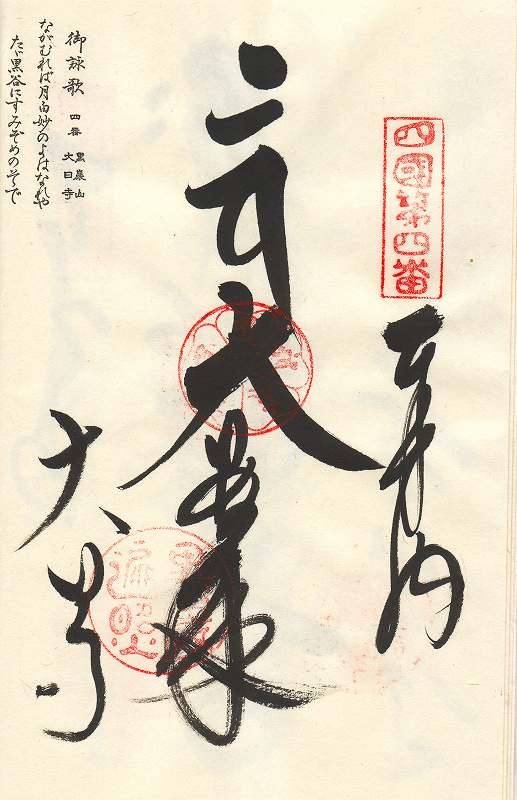 四國第四番
奉納
大日如来
大日寺
御詠歌 四番 黒巌山 大日寺
ながむれば月白妙のよはなれや
たゞ黒谷にすみぞめのそで